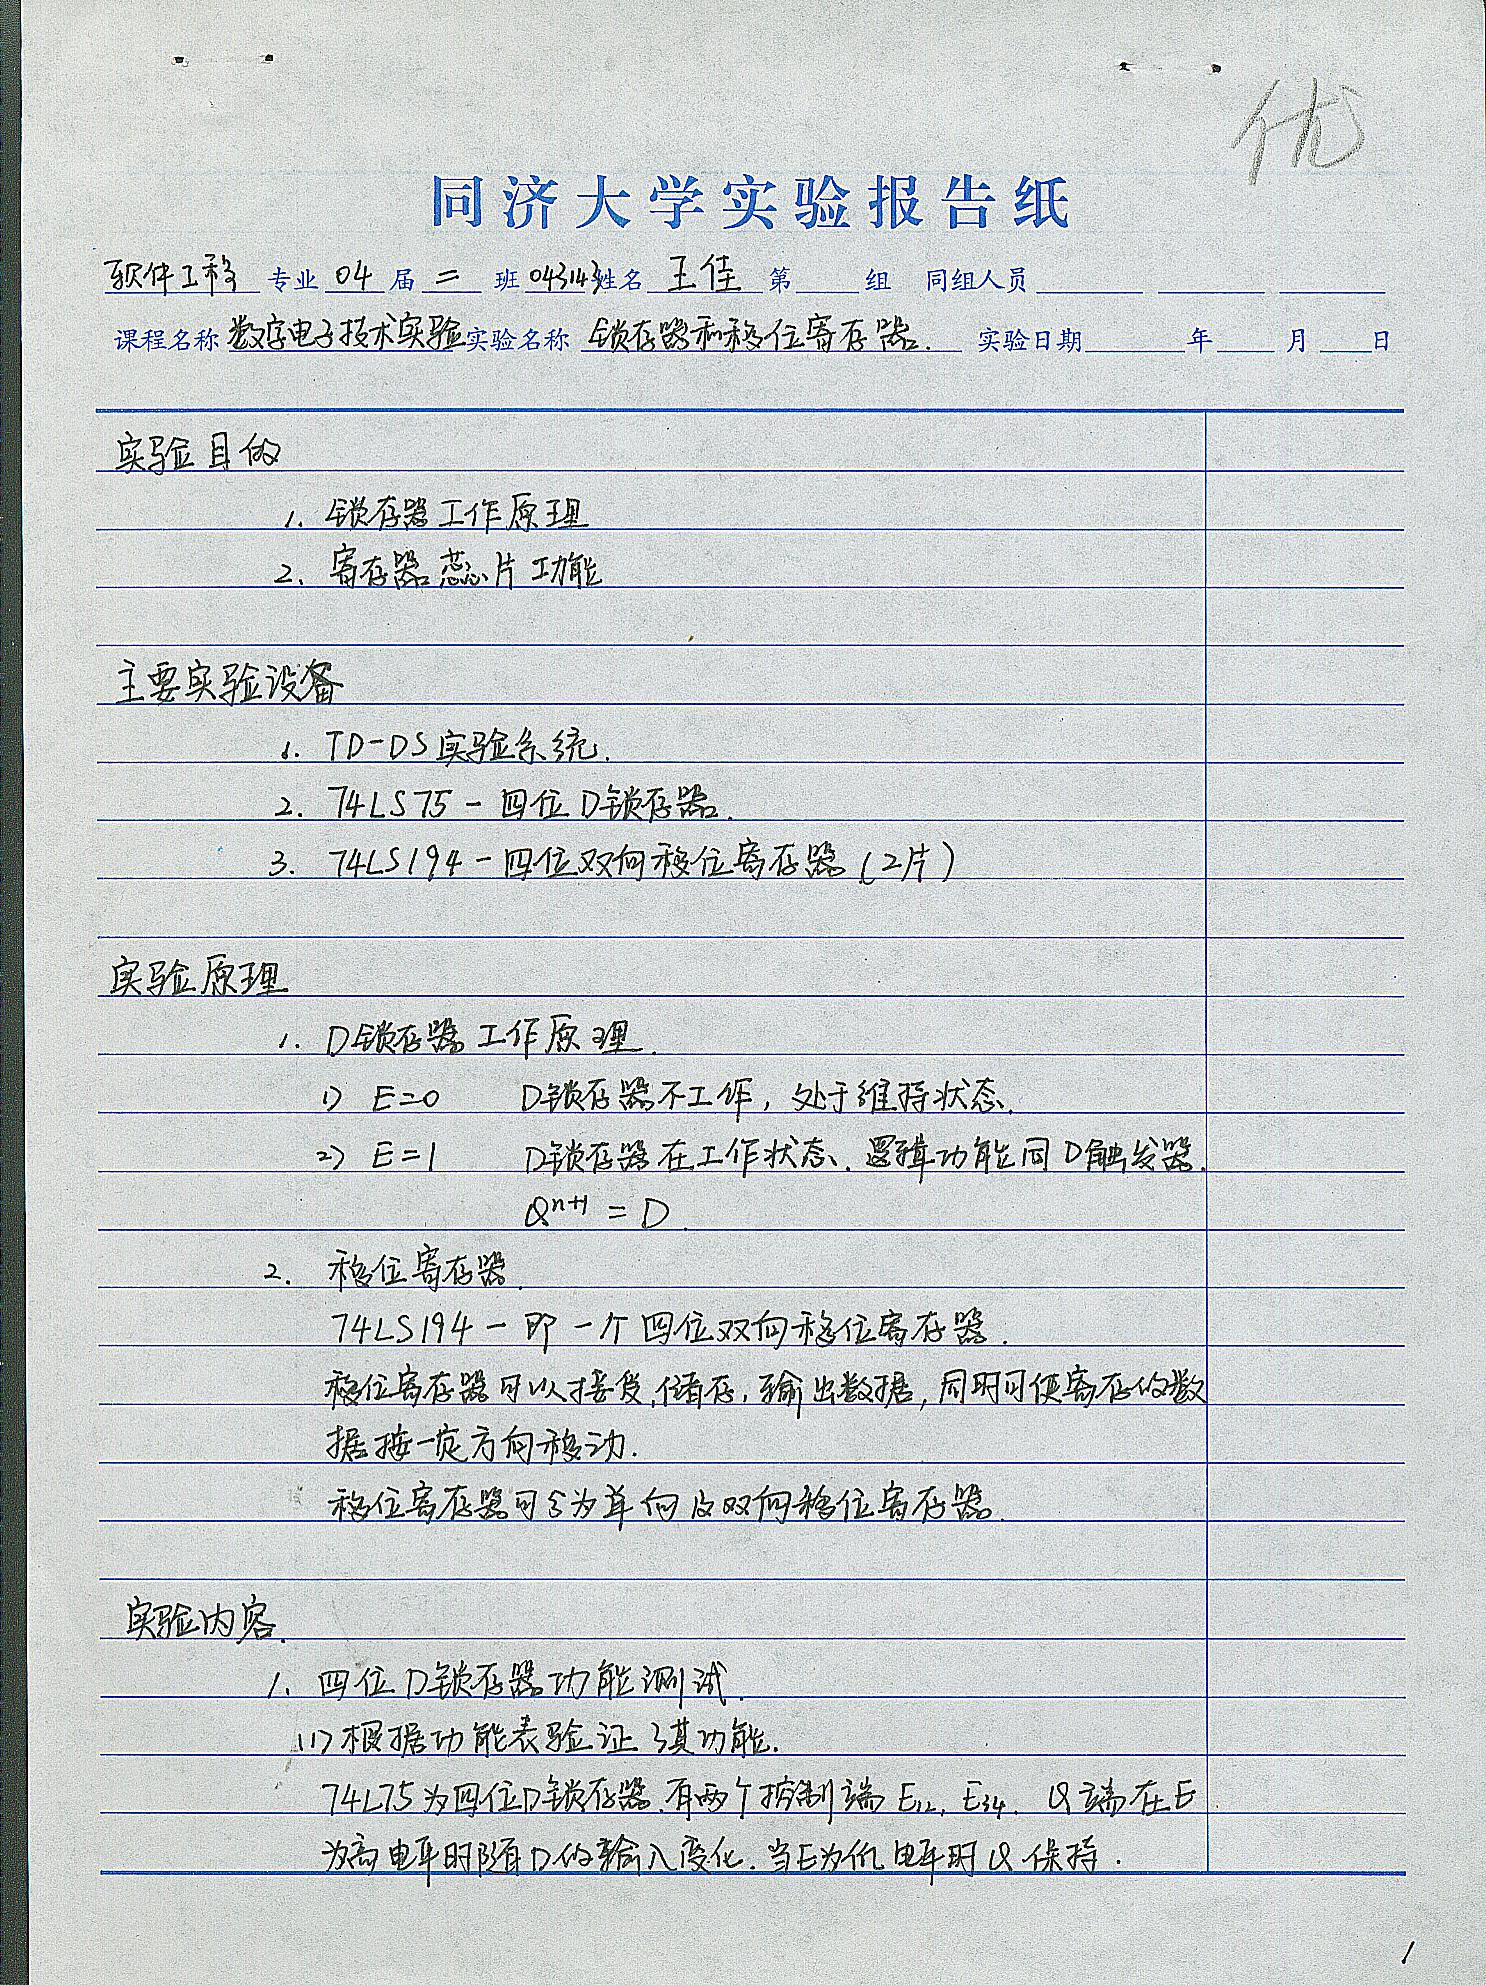 优
同济大学实验报告纸
软件工程 专业 04 届 二 班 043143 姓名 王佳 第 组 同组人员
课程名称 数字电子技术实验 实验名称 锁存器和移位寄存器. 实验日期 年 月 日
实验目的
1. 锁存器工作原理
2. 寄存器蕊片功能
主要实验设备
1. TD-DS实验系统.
2. 74LS75-四位D锁存器.
3. 74LS194-四位双向移位寄存器(2片)
实验原理
1. D锁存器工作原理.
1) E=0 D锁存器不工作, 处于维持状态.
2) E=1 D锁存器在工作状态. 逻辑功能同D触发器.
Qⁿ⁺¹ = D.
2. 移位寄存器.
74LS194-即一个四位双向移位寄存器.
移位寄存器可以接受,储存,输出数据,同时可使寄存的数
据按一定方向移动.
移位寄存器可分为单向及双向移位寄存器.
实验内容.
1. 四位D锁存器功能测试.
(1) 根据功能表验证其功能.
74L75为四位D锁存器.有两个控制端 E₁₂, E₃₄. Q端在E
为高电平时随D的输入变化.当E为低电平时Q保持.
1